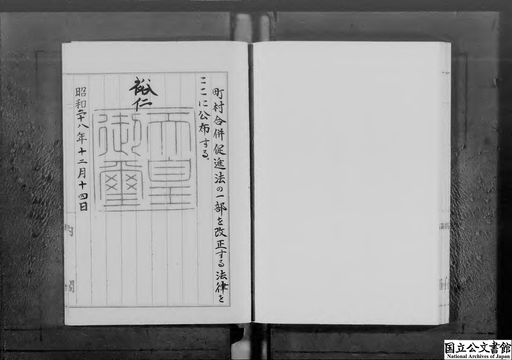 町村合併促進法の一部を改正する法律を
ここに公布する。
裕仁
天皇
御璽
昭和二十八年十二月十四日
国立公文書館
National Archives of Japan